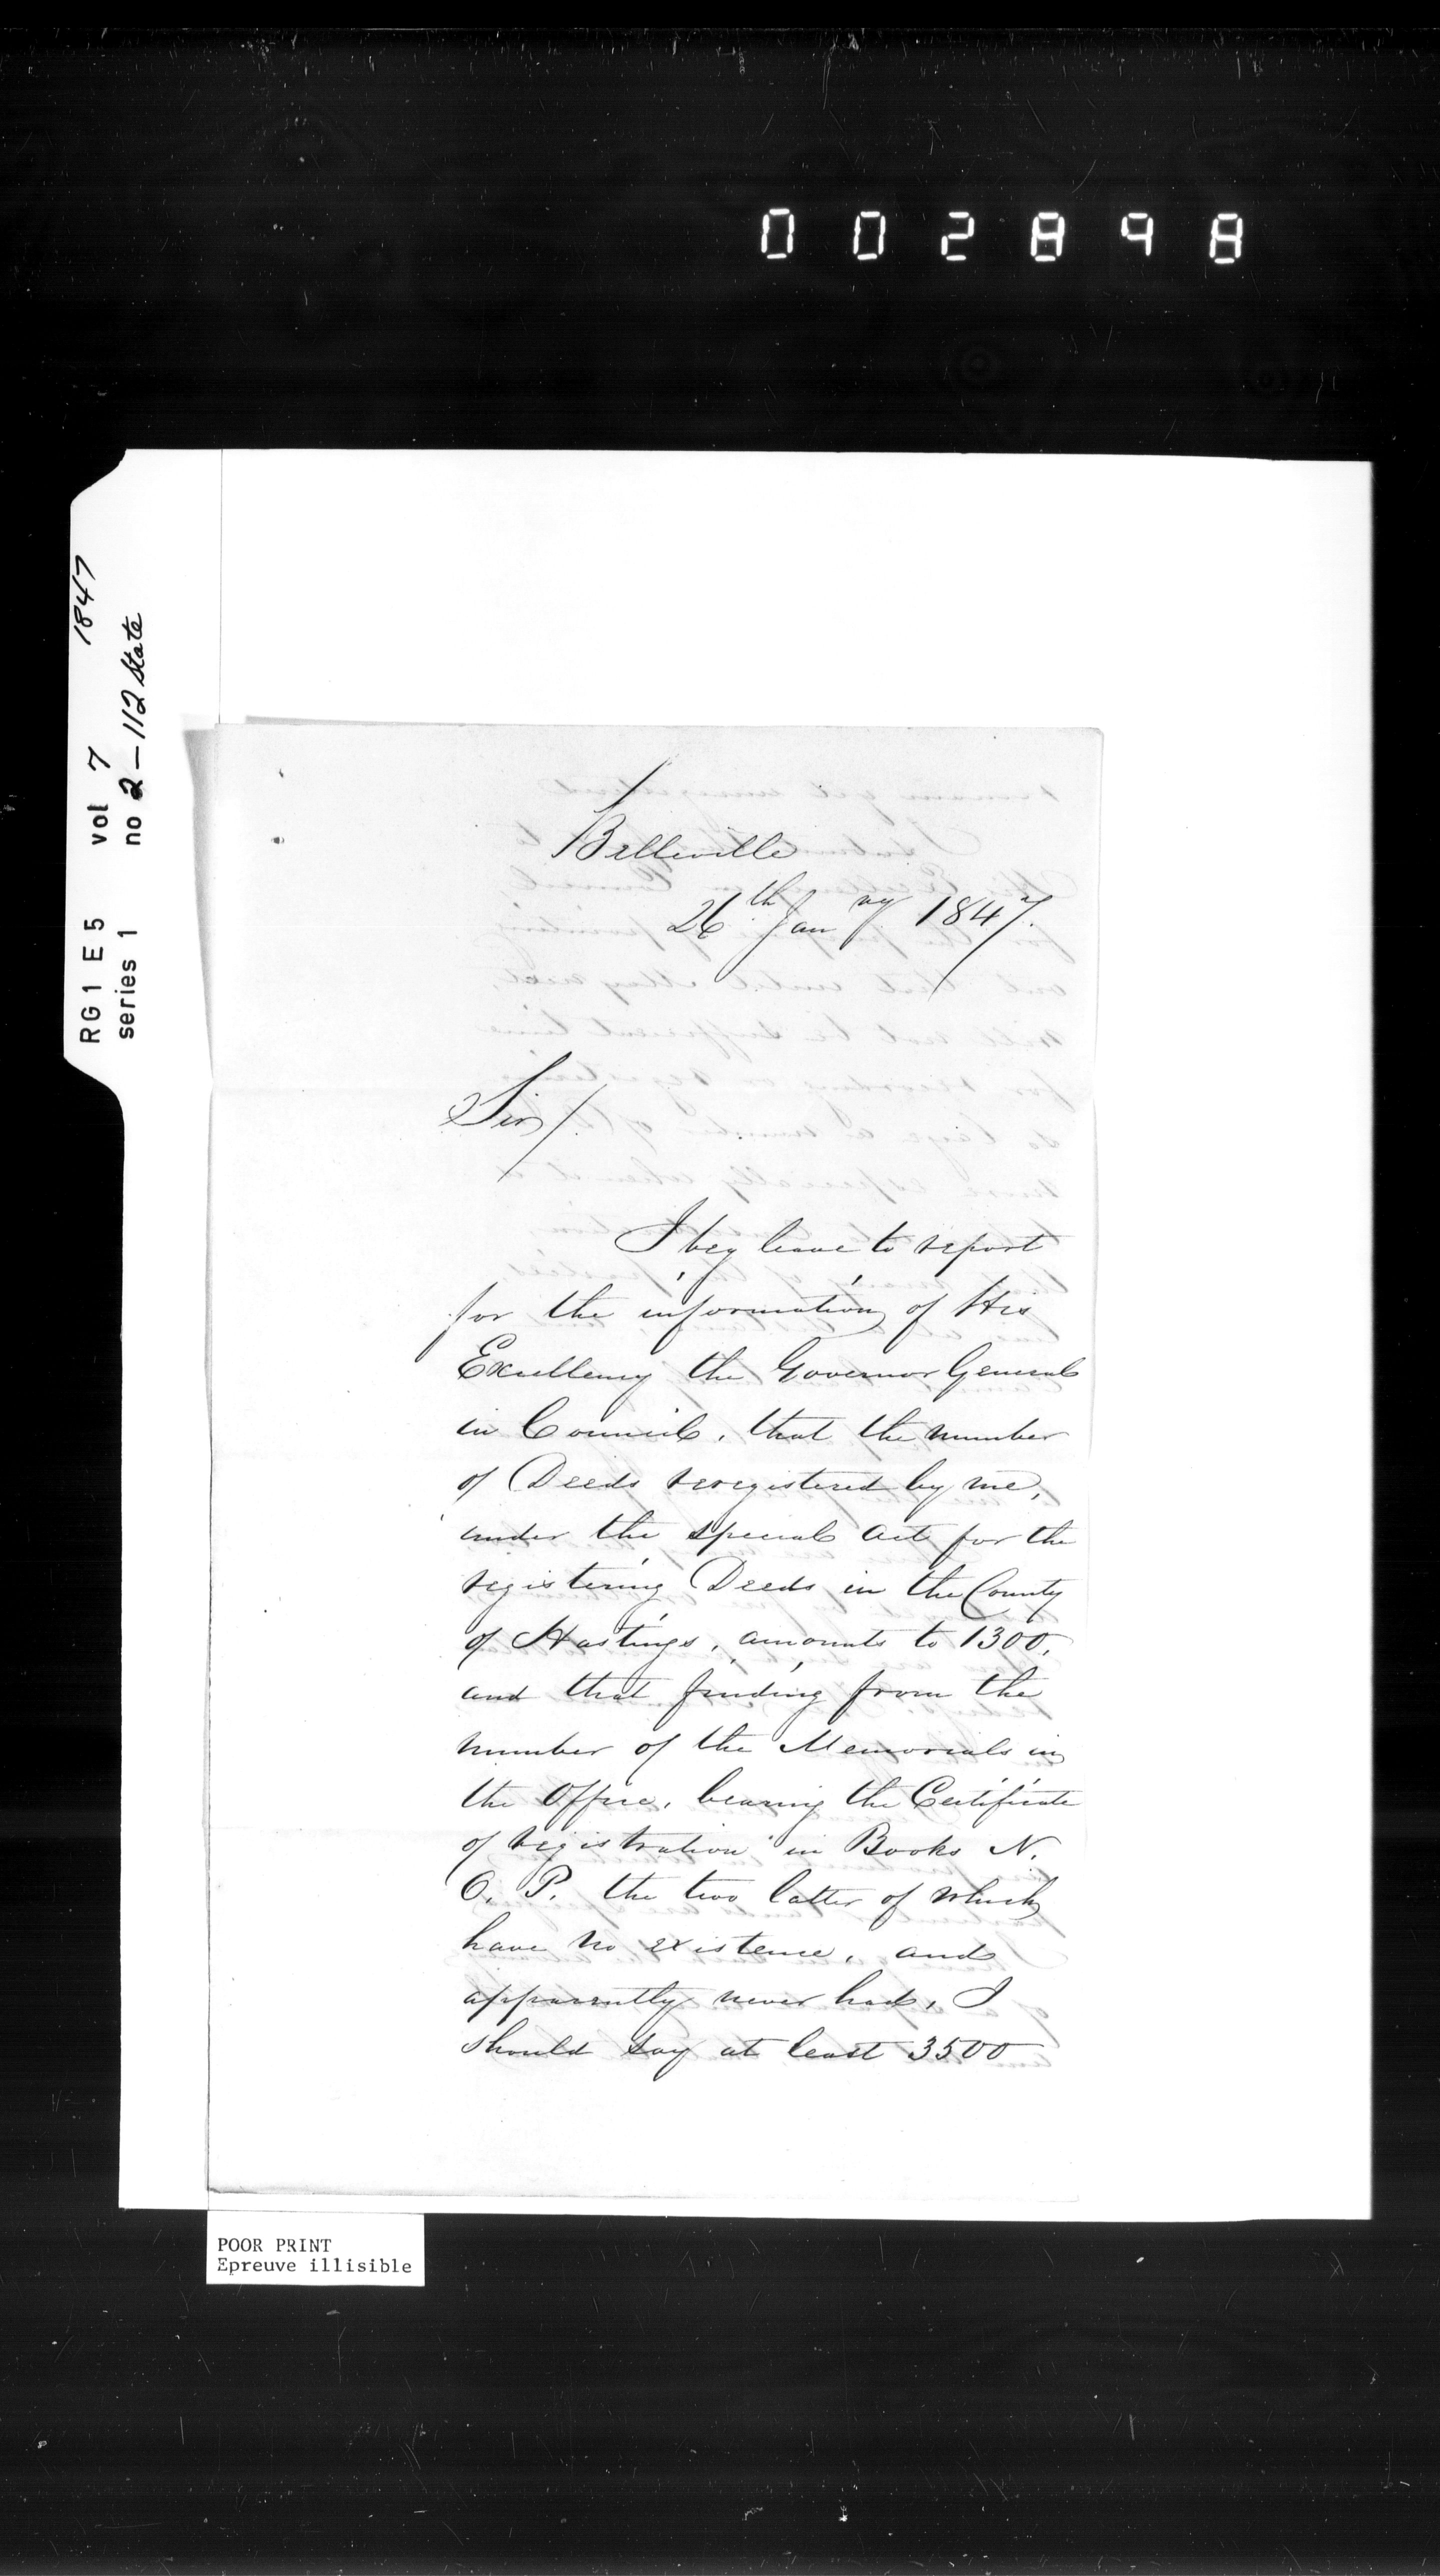 002898
RG1 E5 vol 7 1847
series 1 no 2-112 State
Belleville
26th Jany. 1847.
Sir/.
I beg leave to report
for the information of His
Excellency the Governor General
in Council, that the number
of Deeds reregistered by me,
under the special act for the
registering Deeds in the County
of Hastings, amounts to 1300,
and that finding from the
number of the Memorials in
the Office, bearing the Certificate
of registration in Books N.
O. P. the two latter of which
have no existence, and
apparently never had, I
should say at least 3500
POOR PRINT
Epreuve illisible